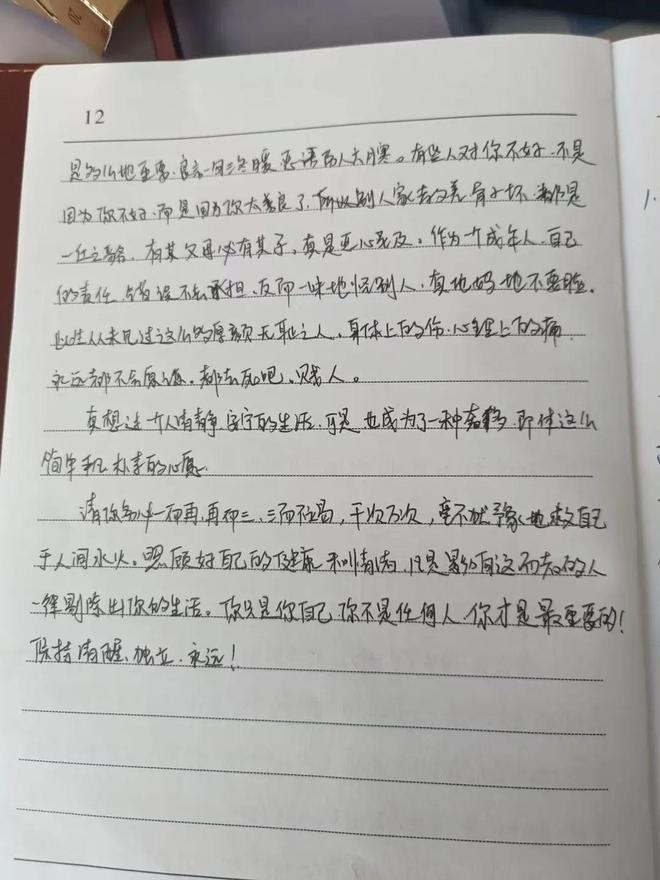 12
是多么地重要.良言一句三冬暖.恶语伤人六月寒。有些人对你不好.不是
因为你不好.而是因为你太善良了.所以别人家教差.骨子坏.都是
一丘之貉.有其父母必有其子.真是恶心至及。作为一个成年人.自己
的责任.错误不去承担.反而一味地怪别人.真他妈地不要脸.
此生从未见过这么的厚颜无耻之人.身体上的伤.心理上的痛.
永远都不会愈.都去死吧.贱人。
真想过一个人清静.安宁的生活.可是也成为了一种奢移.即使这么
简单和朴素的心愿.
请你务必一而再.再而三.三而不竭,千次万次,毫不犹豫地救自己
于人间水火。照顾好自己的健康和情绪.凡是影响这的人
一律剔除出你的生活。你只是你自己.你不是任何人.你才是最重要的!
保持清醒.独立.永远!